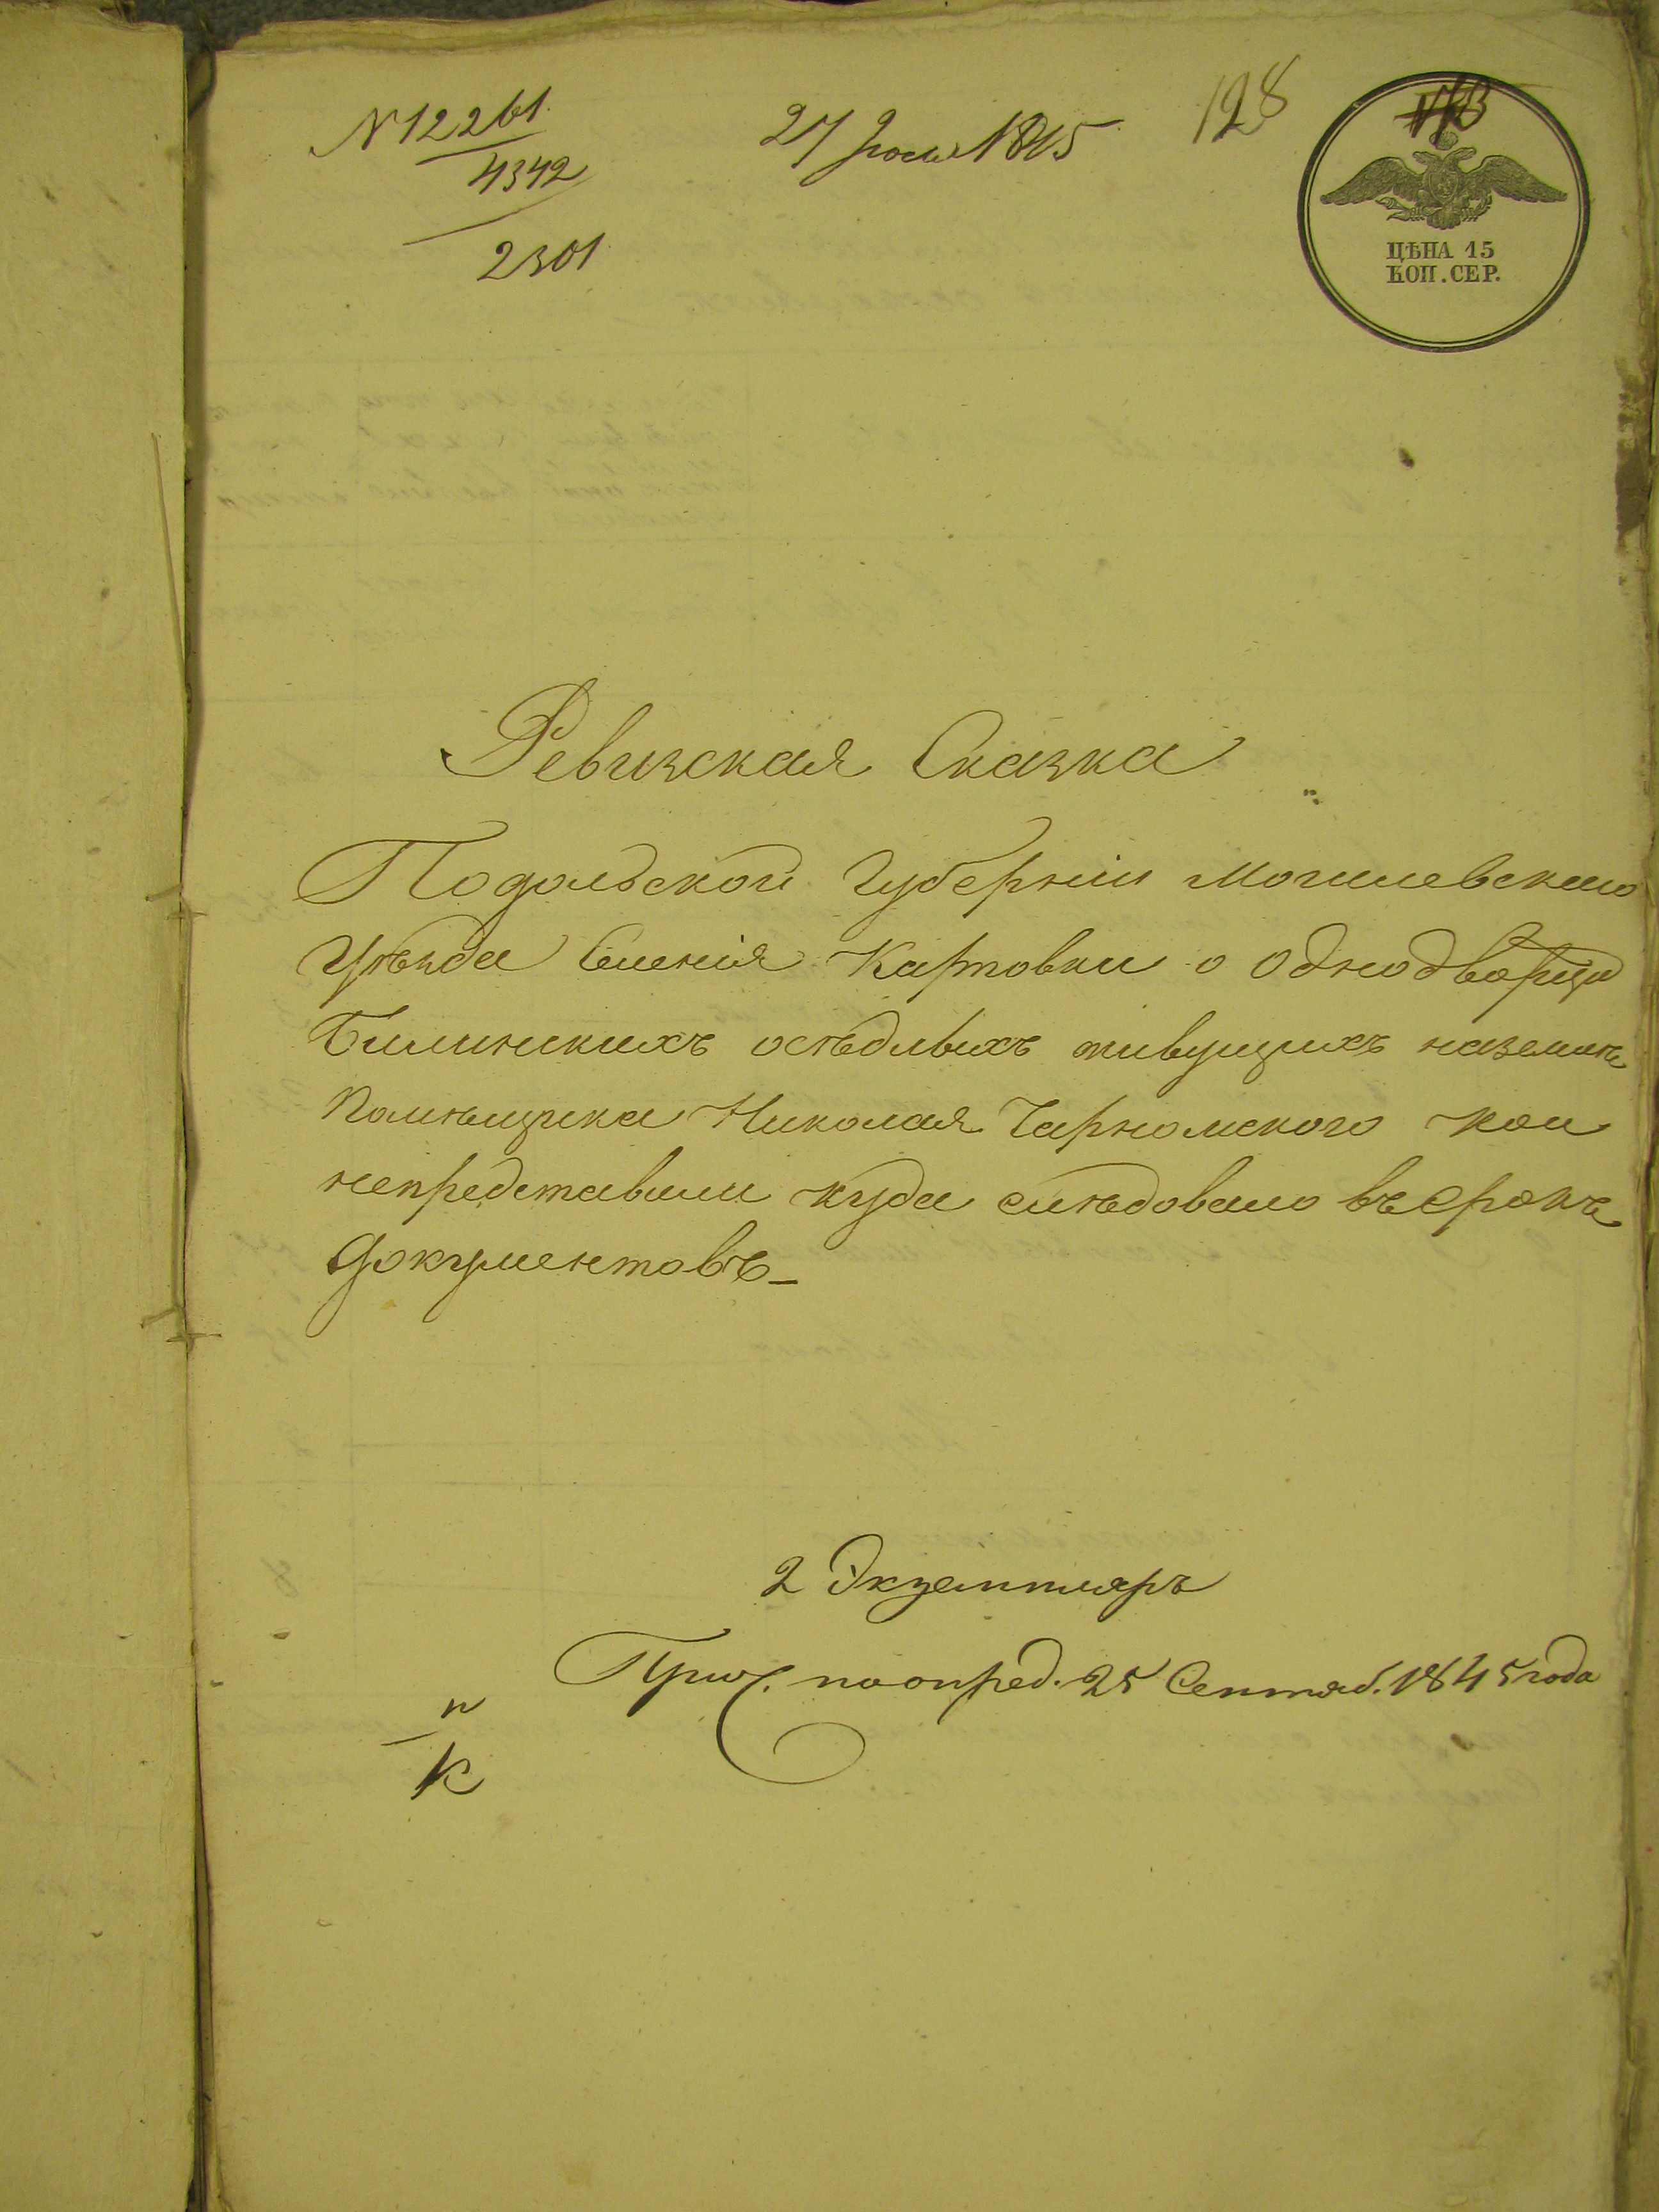 N 12261
4342
2301
27 Июля 1845
128
ЦѢНА 15
КОП. СЕР.
Ревизская Сказка
Подольской Губерніи Могилевскаго
Уѣзда Селенія Карповки о Однодворцѣ
Билинскихъ осѣдлыхъ живущихъ наземлѣ
Помѣщика Николая Чарномского кои
непредставили куда слѣдовало въ срокъ
Документовъ
2 Экземпляръ
поопред. 25 Сентяб. 1845 года
К